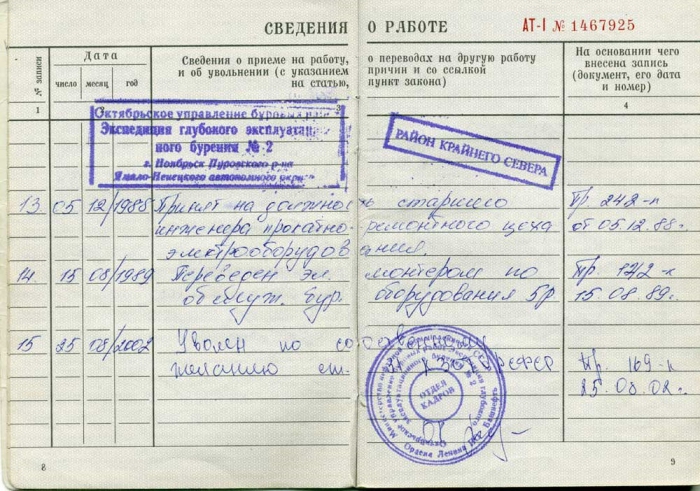 СВЕДЕНИЯ О РАБОТЕ
АТ-I № 1467925
№ записи
Дата
число месяц год
Сведения о приеме на работу, о переводах на другую работу
и об увольнении (с указанием причин и со ссылкой
на статью, пункт закона)
На основании чего
внесена запись
(документ, его дата
и номер)
1 3 4
Октябрьское управление буровых
Экспедиция глубокого эксплуатацион
ного бурения № 2
г. Ноябрьск Пуровского р-на
Ямало-Ненецкого автономного округа
РАЙОН КРАЙНЕГО СЕВЕРА
13 05 12/1988 Принят на должность старшего Пр. 242-к
инженера прокатно-ремонтного цеха от 05.12.88г.
электрооборудования.
14 15 08/1989 Переведен эл. монтером по Пр. 172-к
обслуж. бур. оборудования 5р 15.08.89г.
15 25 08/2002 Уволен по Пр. 169-к
желанию ст. РСФСР 25.08.02г.
ОТДЕЛ
КАДРОВ
Ордена Ленина
8
9